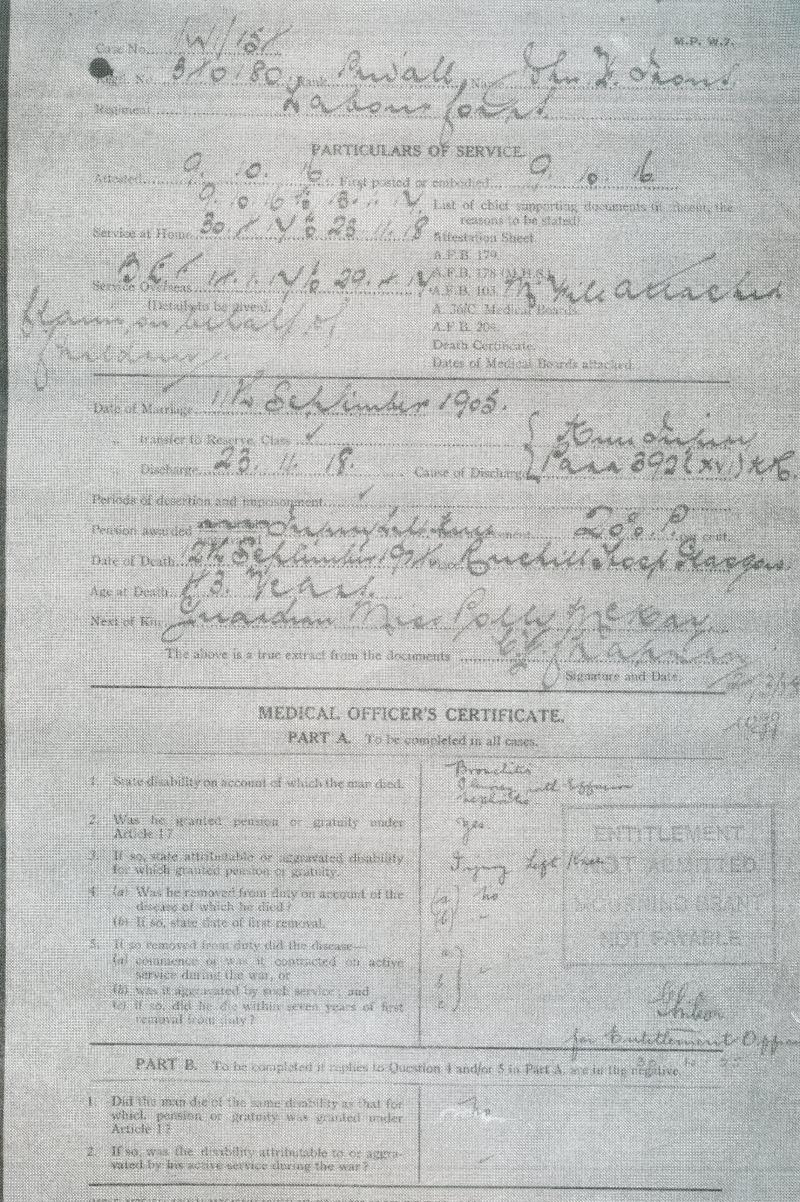 M.P. W.7.
Case No.
Regtl. No. 380180 Rank Name John
Regiment Labour Corps
PARTICULARS OF SERVICE.
Attested 9. 10. 16 First posted or embodied 9. 10. 16
9. 10. 16 to
Service at Home 23. 11. 18
List of chief supporting documents (if absent, the
reasons to be stated)
Attestation Sheet
A.F.B. 179.
B.E.F.
Service Overseas
A.F.B. 178 (M.H.S.)
A.F.B. 103. attached
(Details to be given).
A. 36/C. Medical Boards.
A.F.B. 204.
Claim on behalf of
Children
Death Certificate.
Dates of Medical Boards attached.
Date of Marriage 11th September 1905.
„ transfer to Reserve, Class ✓
„ Discharge 23. 11. 18. Cause of Discharge Para 392 (xvi) K.R.
Periods of desertion and imprisonment ✓
Pension awarded 20% per cent.
Date of Death September Ruchill Hosp Glasgow.
Age at Death 43 Years.
Next of Kin Guardian Miss Polly McKay
The above is a true extract from the documents
Signature and Date.
MEDICAL OFFICER'S CERTIFICATE.
PART A. To be completed in all cases.
1. State disability on account of which the man died.
Bronchitis
Pleurisy with Effusion
Nephritis
2. Was he granted pension or gratuity under
Article 1?
Yes.
3. If so, state attributable or aggravated disability
for which granted pension or gratuity.
Injury Left Knee
4. (a) Was he removed from duty on account of the
disease of which he died?
(b) If so, state date of first removal.
(a) No
(b) -
5. If so removed from duty did the disease—
(a) commence or was it contracted on active
service during the war, or
(b) was it aggravated by such service; and
(c) if so, did he die within seven years of first
removal from duty?
a
b
c
ENTITLEMENT
NOT ADMITTED
MOURNING GRANT
NOT PAYABLE
for Entitlement Officer
PART B. To be completed if replies to Question 4 and/or 5 in Part A. are in the negative.
1. Did the man die of the same disability as that for
which pension or gratuity was granted under
Article 1?
No
2. If so, was the disability attributable to or aggra-
vated by his active service during the war?
-